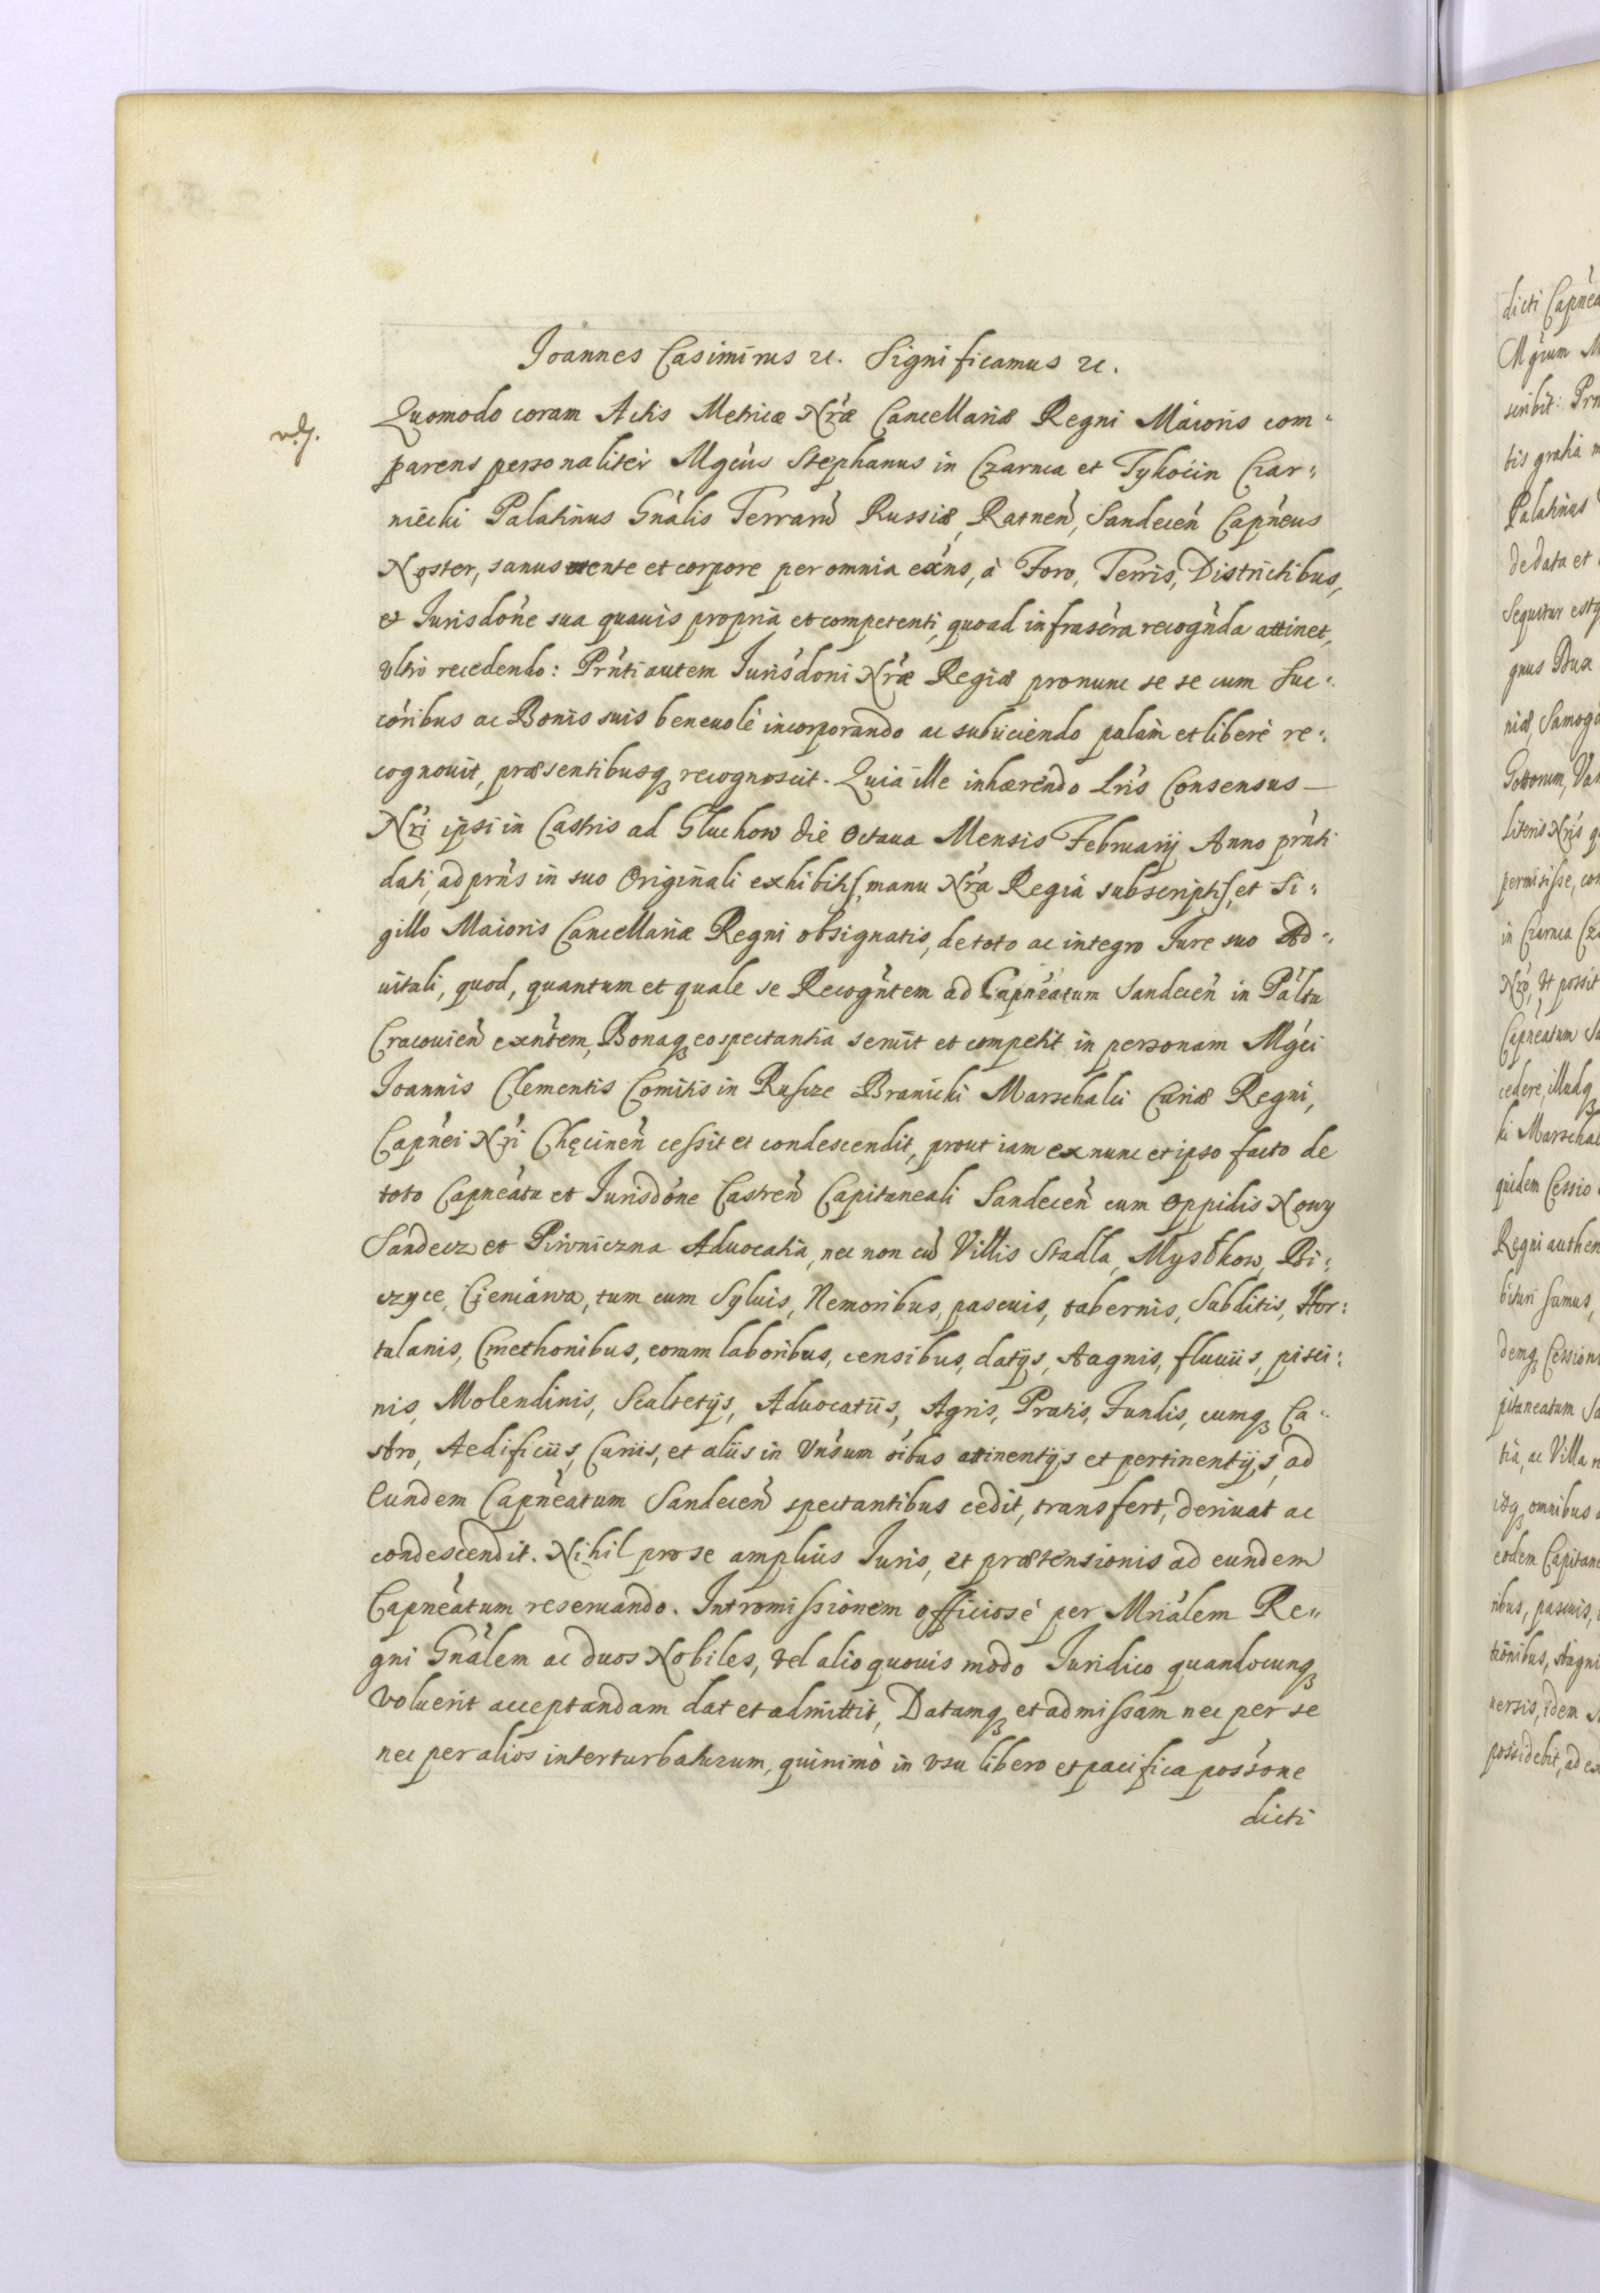 Joannes Casimirus etc. Significamus etc.
Quomodo coram Actis Metricæ Nræ Cancellariæ Regni Maioris com-
parens personaliter Mgcus Stephanus in Czarnca et Tykocin Czar-
niecki Palatinus Gnalis Terraru Russiæ, Ratnen, Sandecen Capneus
Noster, sanus mente et corpore per omnia exns, à Foro, Terris, Districtibus,
et Jurisdone sua quauis propria et competenti, quoad infrascra recognda attinet,
vltro recedendo: Prnti autem Jurisdoni Nræ Regiæ pro nunc se se cum Suc-
coribus ac Bonis suis beneuolè incorporando ac subijciendo palàm et liberè re-
cognouit, præsentibusq recognoscit. Quia ille inhærendo Lris Consensus
Nri ipsi in Castris ad Gluchow die Octaua Mensis Februarij Anno prnti
dati, ad prns in suo Originali exhibitis, manu Nra Regia subscriptis, et Si-
gillo Maioris Cancellariæ Regni obsignatis, de toto ac integro Jure suo Ad-
uitali, quod, quantum et quale se Recogntem ad Capneatum Sandecen in Paltu
Cracouien exntem, Bonaq eo spectantia seruit et competit in personam Mgci
Joannis Clementis Comitis in Ruscze Branicki Marschalci Curiæ Regni,
Capnei Nri Chęcinen cessit et condescendit, prout iam ex nunc et ipso facto de
toto Capneatu et Jurisdone Castren Capitaneali Sandecen cum Oppidis Nowy
Sandecz et Piwniczna Aduocatia, nec non cu Villis Stadla, Mystkow, Bi-
czyce, Cieniawa, tum cum Syluis, Nemoribus, pascuis, tabernis, Subditis, Hor-
tulanis, Cmethonibus, eorum laboribus, censibus, datijs, stagnis, fluuiis, pisci-
nis, Molendinis, Scaltetijs, Aduocatiis, Agris, Pratis, Fundis, cumq Ca-
stro, Aedificiis, Curiis, et aliis in Vnsum oibus attinentijs et pertinentijs, ad
Eundem Capneatum Sandecen spectantibus cedit, transfert, deriuat ac
condescendit. Nihil pro se amplius Juris, et prætensionis ad eundem
Capneatum reseruando. Intromissionem officiosè per Mrialem Re-
gni Gnalem ac duos Nobiles, vel alio quouis modo Juridico quandocunq
voluerit acceptandam dat et admittit, Datamq et admissam nec per se
nec per alios interturbaturum, quinimò in vsu libero et pacifica possone
dicti